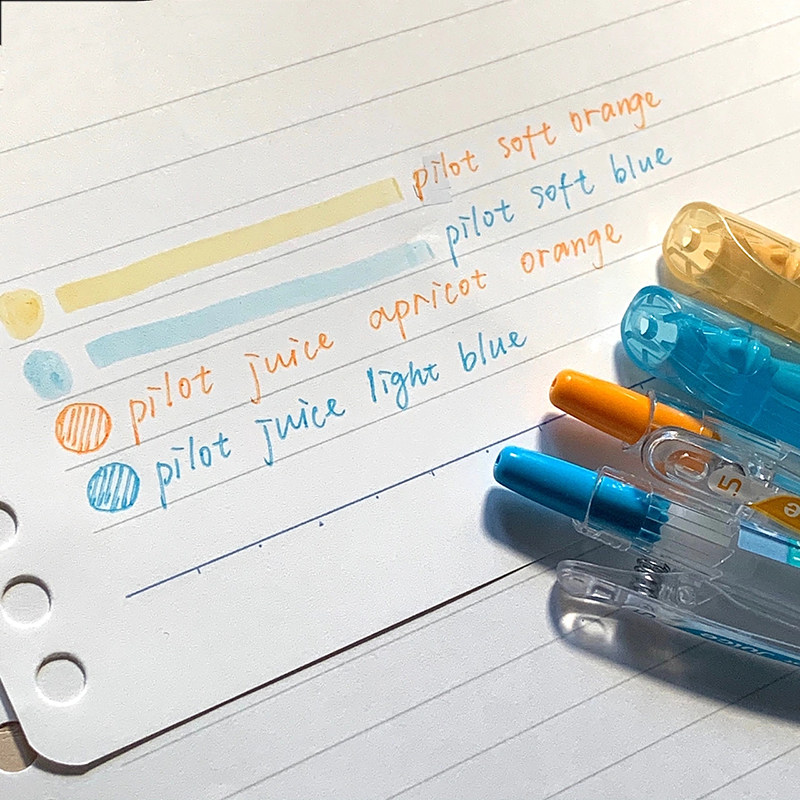 pilot soft orange
pilot soft blue
pilot juice apricot orange
pilot juice light blue
5
Juice